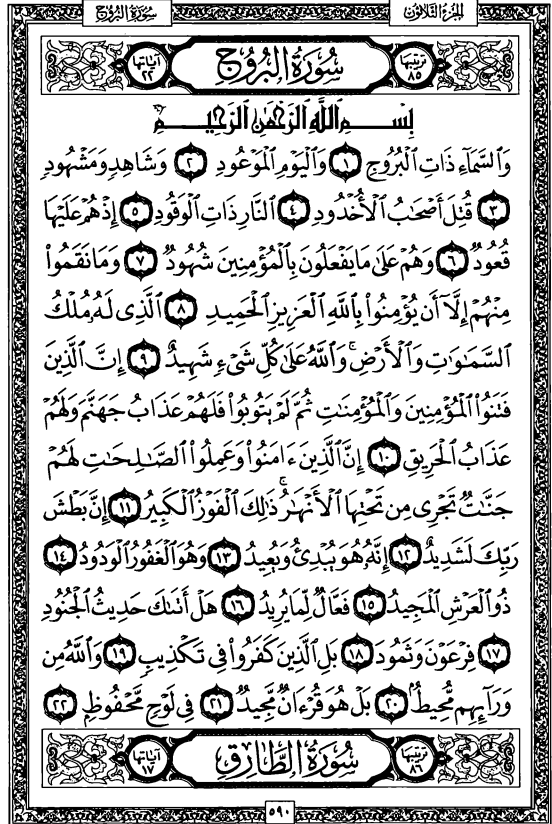 الجزء الثلاثون سورة البروج
ترتيبها ٨٥ سُورَةُ البُرُوجِ آياتها ٢٢
بِسْمِ اللَّهِ الرَّحْمَٰنِ الرَّحِيمِ
وَالسَّمَآءِ ذَاتِ الْبُرُوجِ ١ وَالْيَوْمِ الْمَوْعُودِ ٢ وَشَاهِدٍ وَمَشْهُودٍ
٣ قُتِلَ أَصْحَٰبُ الْأُخْدُودِ ٤ النَّارِ ذَاتِ الْوَقُودِ ٥ إِذْ هُمْ عَلَيْهَا
قُعُودٌ ٦ وَهُمْ عَلَىٰ مَا يَفْعَلُونَ بِالْمُؤْمِنِينَ شُهُودٌ ٧ وَمَا نَقَمُوا۟
مِنْهُمْ إِلَّآ أَن يُؤْمِنُوا۟ بِاللَّهِ الْعَزِيزِ الْحَمِيدِ ٨ الَّذِى لَهُۥ مُلْكُ
السَّمَٰوَٰتِ وَالْأَرْضِ ۚ وَاللَّهُ عَلَىٰ كُلِّ شَىْءٍ شَهِيدٌ ٩ إِنَّ الَّذِينَ
فَتَنُوا۟ الْمُؤْمِنِينَ وَالْمُؤْمِنَٰتِ ثُمَّ لَمْ يَتُوبُوا۟ فَلَهُمْ عَذَابُ جَهَنَّمَ وَلَهُمْ
عَذَابُ الْحَرِيقِ ١٠ إِنَّ الَّذِينَ ءَامَنُوا۟ وَعَمِلُوا۟ الصَّٰلِحَٰتِ لَهُمْ
جَنَّٰتٌ تَجْرِى مِن تَحْتِهَا الْأَنْهَٰرُ ۚ ذَٰلِكَ الْفَوْزُ الْكَبِيرُ ١١ إِنَّ بَطْشَ
رَبِّكَ لَشَدِيدٌ ١٢ إِنَّهُۥ هُوَ يُبْدِئُ وَيُعِيدُ ١٣ وَهُوَ الْغَفُورُ الْوَدُودُ ١٤
ذُو الْعَرْشِ الْمَجِيدُ ١٥ فَعَّالٌ لِّمَا يُرِيدُ ١٦ هَلْ أَتَىٰكَ حَدِيثُ الْجُنُودِ
١٧ فِرْعَوْنَ وَثَمُودَ ١٨ بَلِ الَّذِينَ كَفَرُوا۟ فِى تَكْذِيبٍ ١٩ وَاللَّهُ مِن
وَرَآئِهِم مُّحِيطٌ ٢٠ بَلْ هُوَ قُرْءَانٌ مَّجِيدٌ ٢١ فِى لَوْحٍ مَّحْفُوظٍ ٢٢
ترتيبها ٨٦ سُورَةُ الطَّارِقِ آياتها ١٧
٥٩٠